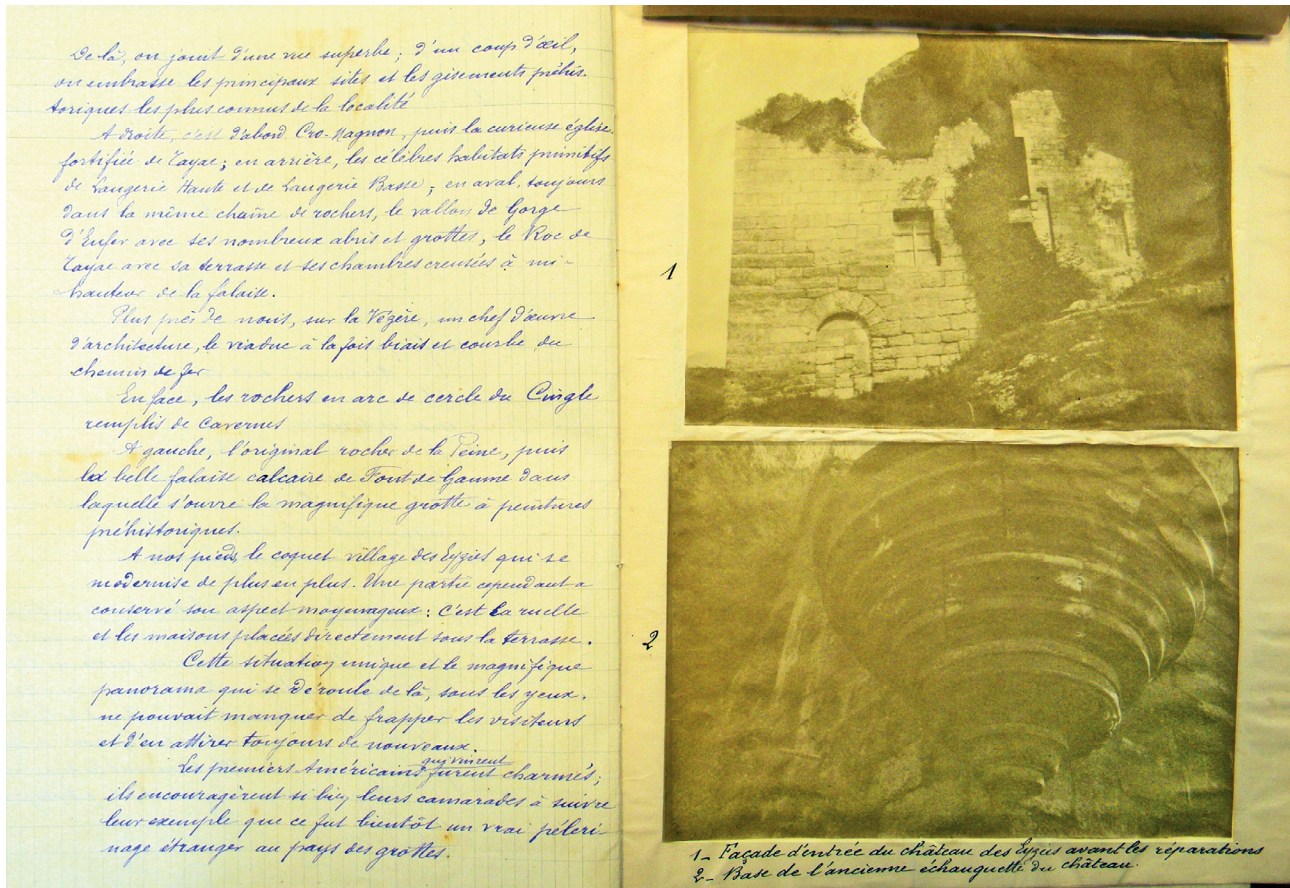 De là, on jouit d'une vue superbe ; d'un coup d'œil,
on embrasse les principaux sites et les gisements préhis-
toriques les plus connus de la localité
A droite, c'est d'abord Cro-Magnon, puis la curieuse église
fortifiée de Tayac ; en arrière, les célèbres habitats primitifs
de Laugerie Haute et de Laugerie Basse ; en aval, toujours
dans la même chaîne de rochers, le vallon de Gorge
d'Enfer avec ses nombreux abris et grottes, le Roc de
Tayac avec sa terrasse et ses chambres creusées à mi-
hauteur de la falaise.
Plus près de nous, sur la Vézère, un chef d'œuvre
d'architecture, le viaduc à la fois biais et courbe du
chemin de fer
En face, les rochers en arc de cercle du Cingle
remplis de cavernes
A gauche, l'original rocher de la Peine, puis
la belle falaise calcaire de Font de Gaume dans
laquelle s'ouvre la magnifique grotte à peintures
préhistoriques.
A nos pieds, le coquet village des Eyzies qui se
modernise de plus en plus. Une partie cependant a
conservé son aspect moyenageux : c'est la ruelle
et les maisons placées directement sous la terrasse.
Cette situation unique et le magnifique
panorama qui se déroule de là, sous les yeux,
ne pouvait manquer de frapper les visiteurs
et d'en attirer toujours de nouveaux.
Les premiers Américains qui vinrent furent charmés ;
ils encouragèrent si bien leurs camarades à suivre
leur exemple que ce fut bientôt un vrai péleri-
nage étranger au pays des grottes.
1
2
1_ Façade d'entrée du château des Eyzies avant les réparations
2_ Base de l'ancienne échauguette du château.